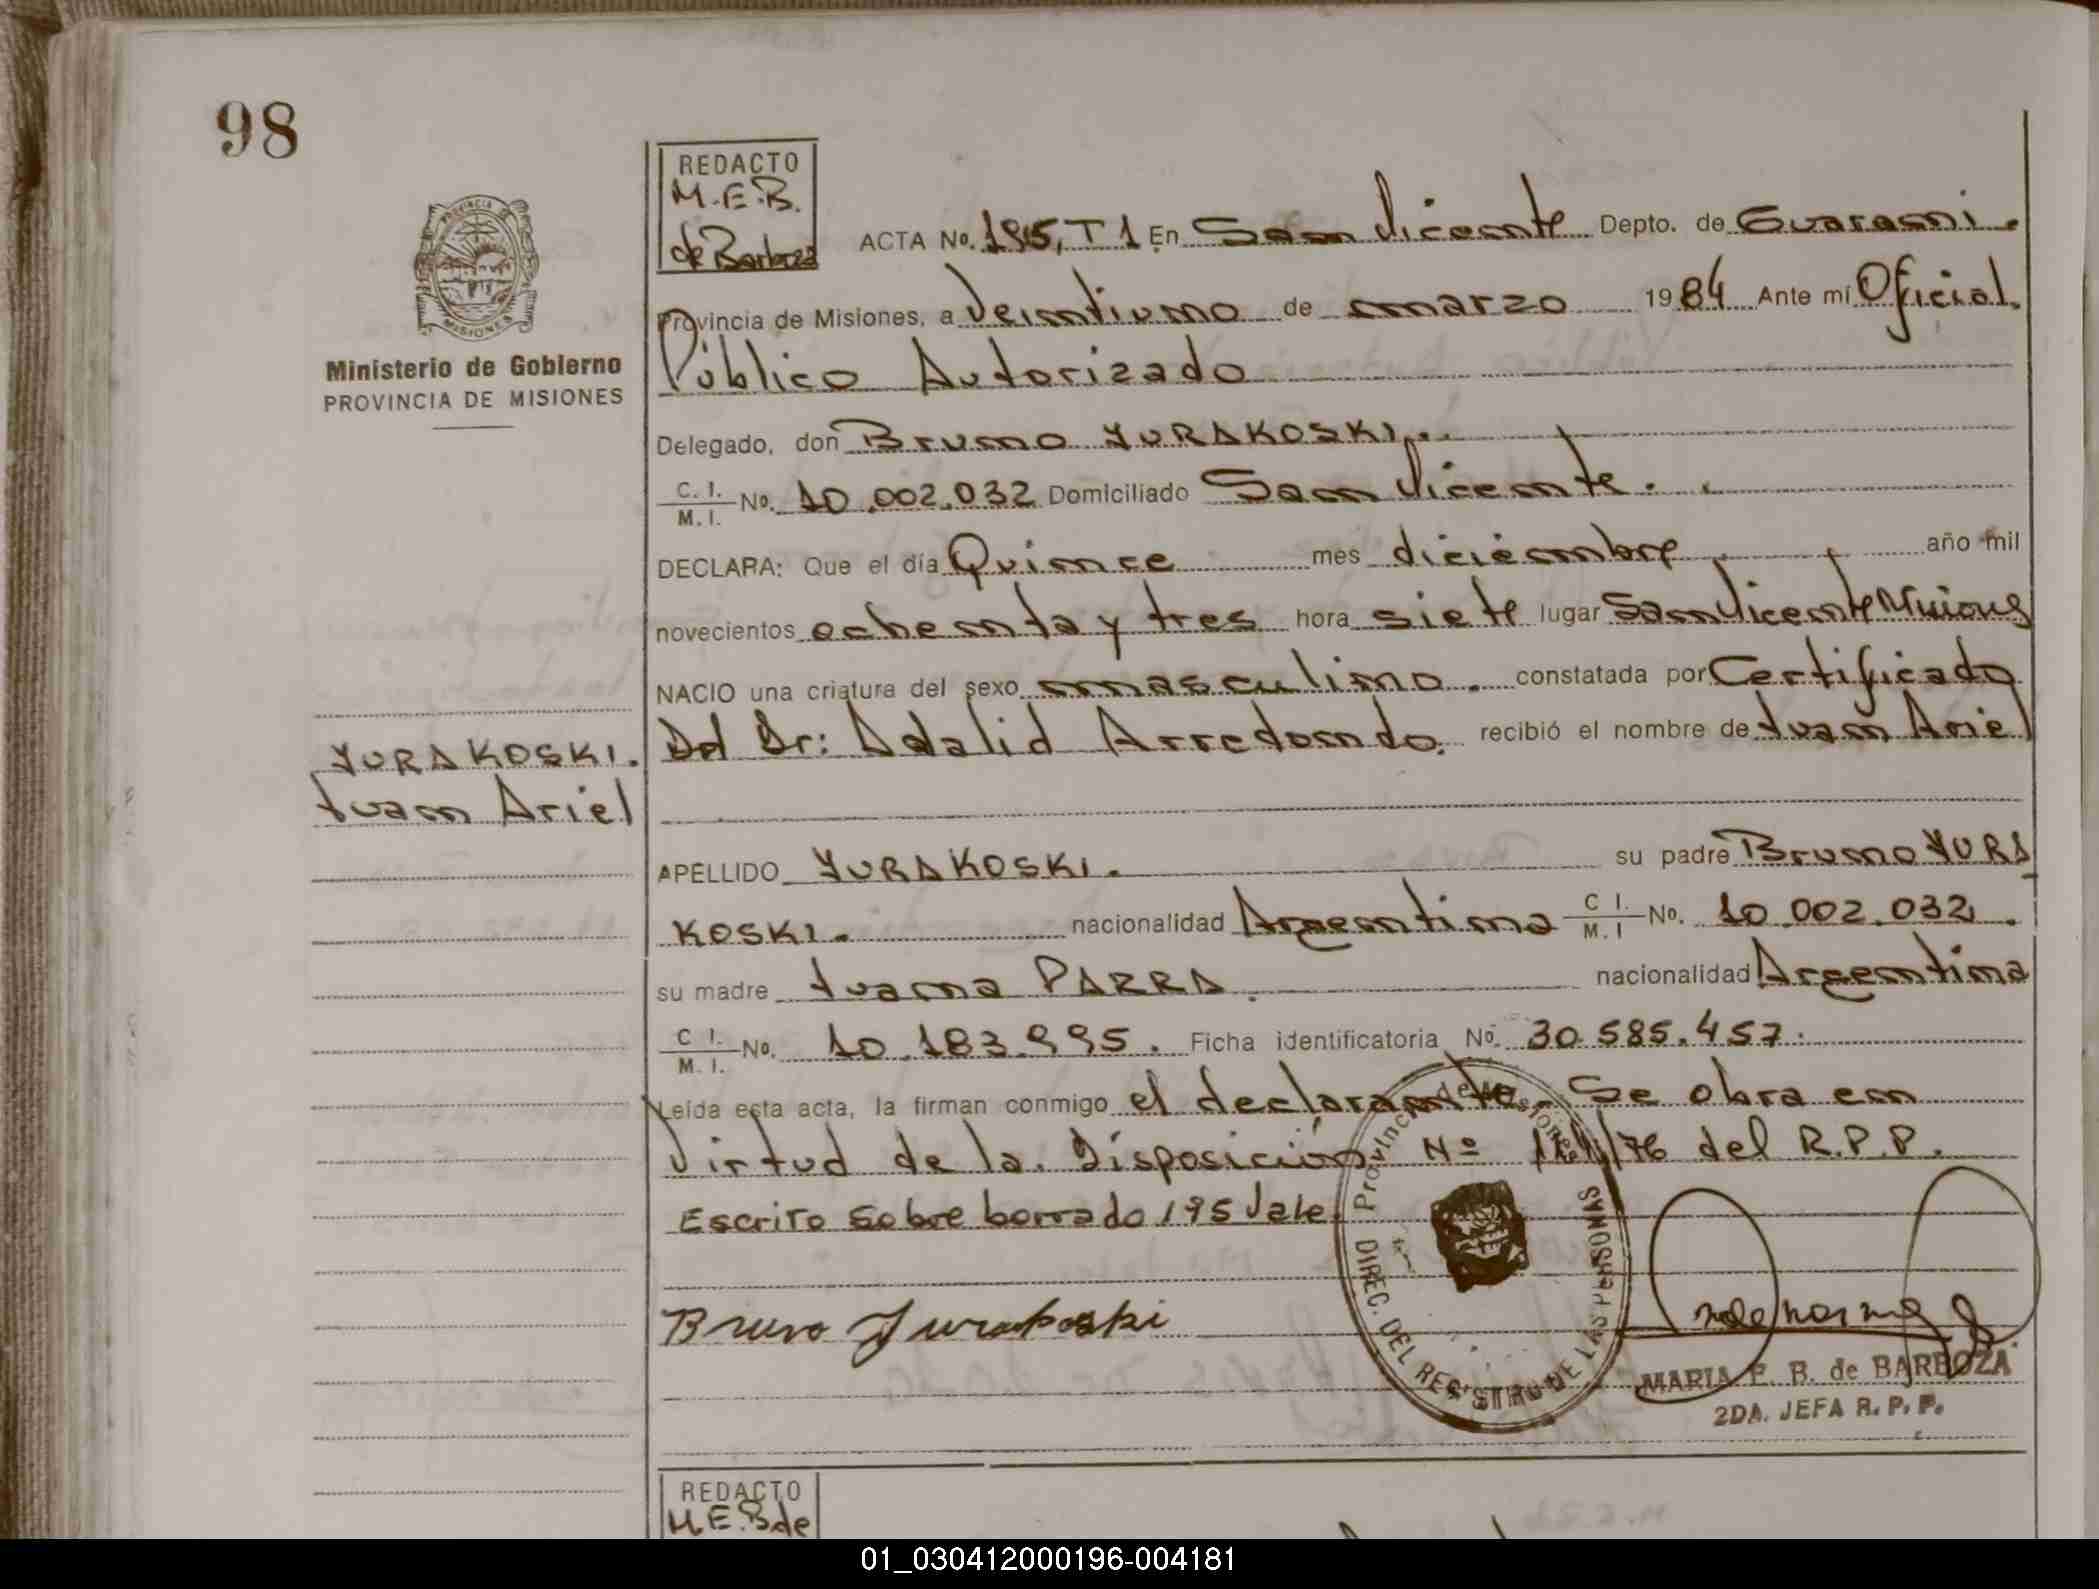 98
REDACTO
M.E.B.
de Barboza
PROVINCIA DE
MISIONES
Ministerio de Gobierno
PROVINCIA DE MISIONES
ACTA No. 195, T 1 En San Vicente Depto. de Guarani.
Provincia de Misiones, a Veintiuno de marzo 1984 Ante mí Oficial
Público Autorizado
Delegado, don Bruno YURAKOSKI.
C. I. / M. I. No. 10.002.032 Domiciliado San Vicente.
DECLARA: Que el día Quince mes diciembre año mil
novecientos ochenta y tres hora siete lugar San Vicente Misiones
NACIO una criatura del sexo masculino. constatada por Certificado
Del Dr: Adalid Arredondo. recibió el nombre de Juan Ariel
YURAKOSKI.
Juan Ariel
APELLIDO YURAKOSKI. su padre Bruno YURA
KOSKI. nacionalidad Argentina C I. / M. I No. 10.002.032.
su madre Juana PARRA. nacionalidad Argentina
C I. / M. I. No. 10.183.995. Ficha identificatoria No. 30.585.457.
Leída esta acta, la firman conmigo el declarante. Se obra en
Virtud de la Disposición Nº /76 del R.P.P.
Escrito sobre borrado 195 Vale.
Bruno Yurakoski
Provincia de Misiones
DIREC. DEL REGISTRO DE LAS PERSONAS
MARIA E. B. de BARBOZA
2DA. JEFA R. P. P.
REDACTO
M.E.B de
01_030412000196-004181